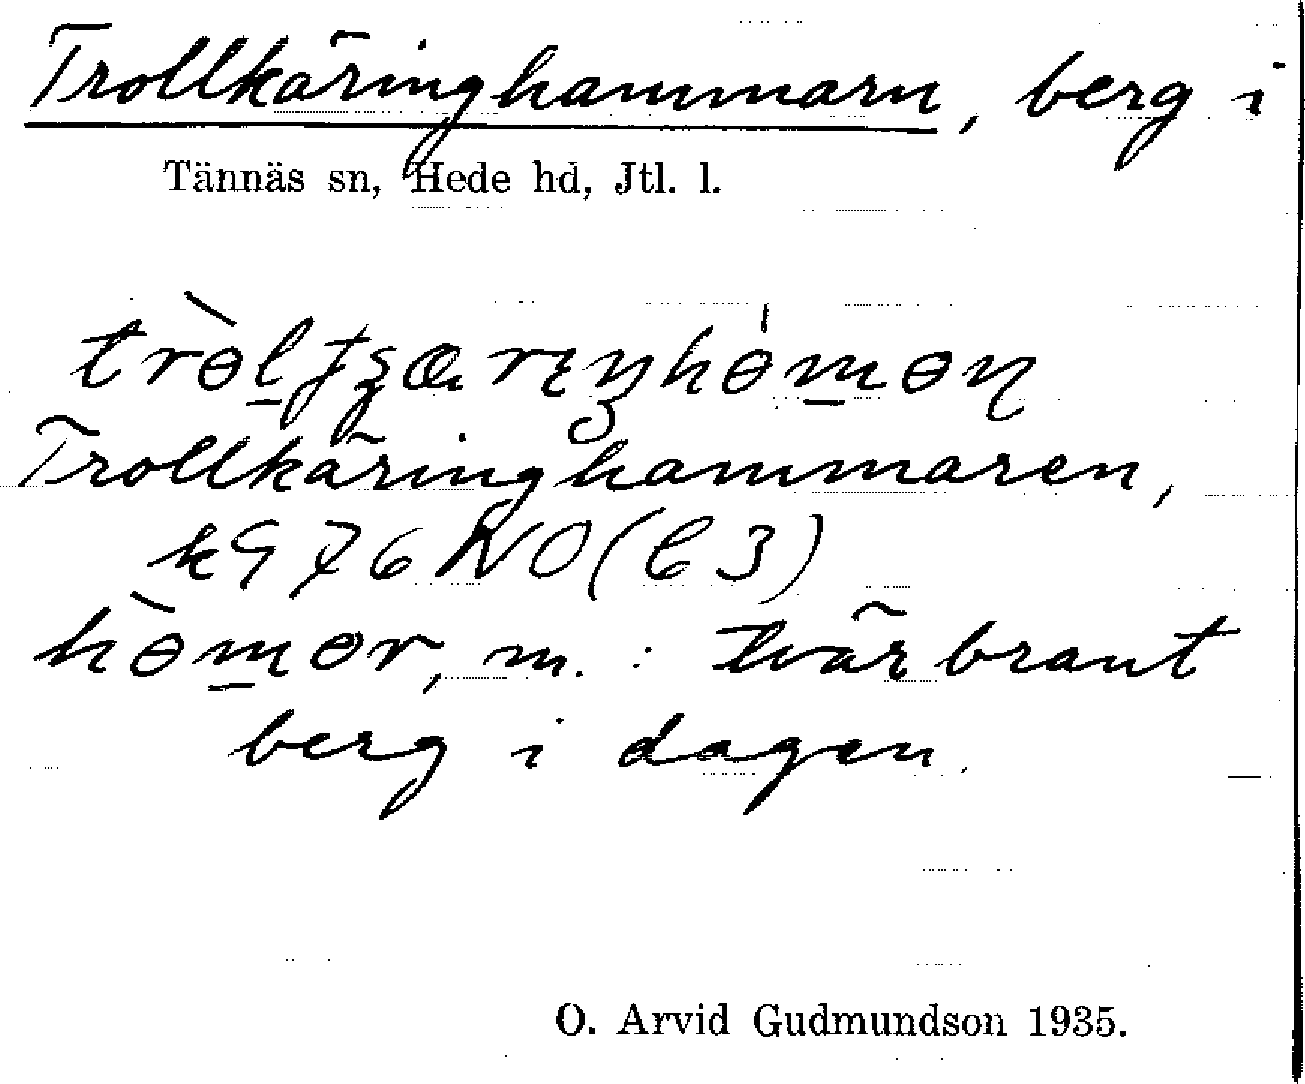 Trollkäringhammarn, berg i
Tännäs sn, Hede hd, Jtl. l.
Trollkäringhammaren,
k976NO(C3)
hὸmər, m. : tvärbrant
berg i dagen.
O. Arvid Gudmundson 1935.